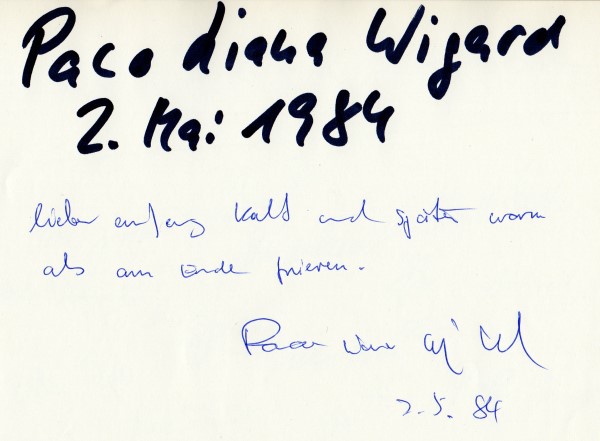 Paco Liana Wigard
2. Mai 1984
lieber anfang kalt und später warm
als am Ende frieren.
Paco
2. 5. 84